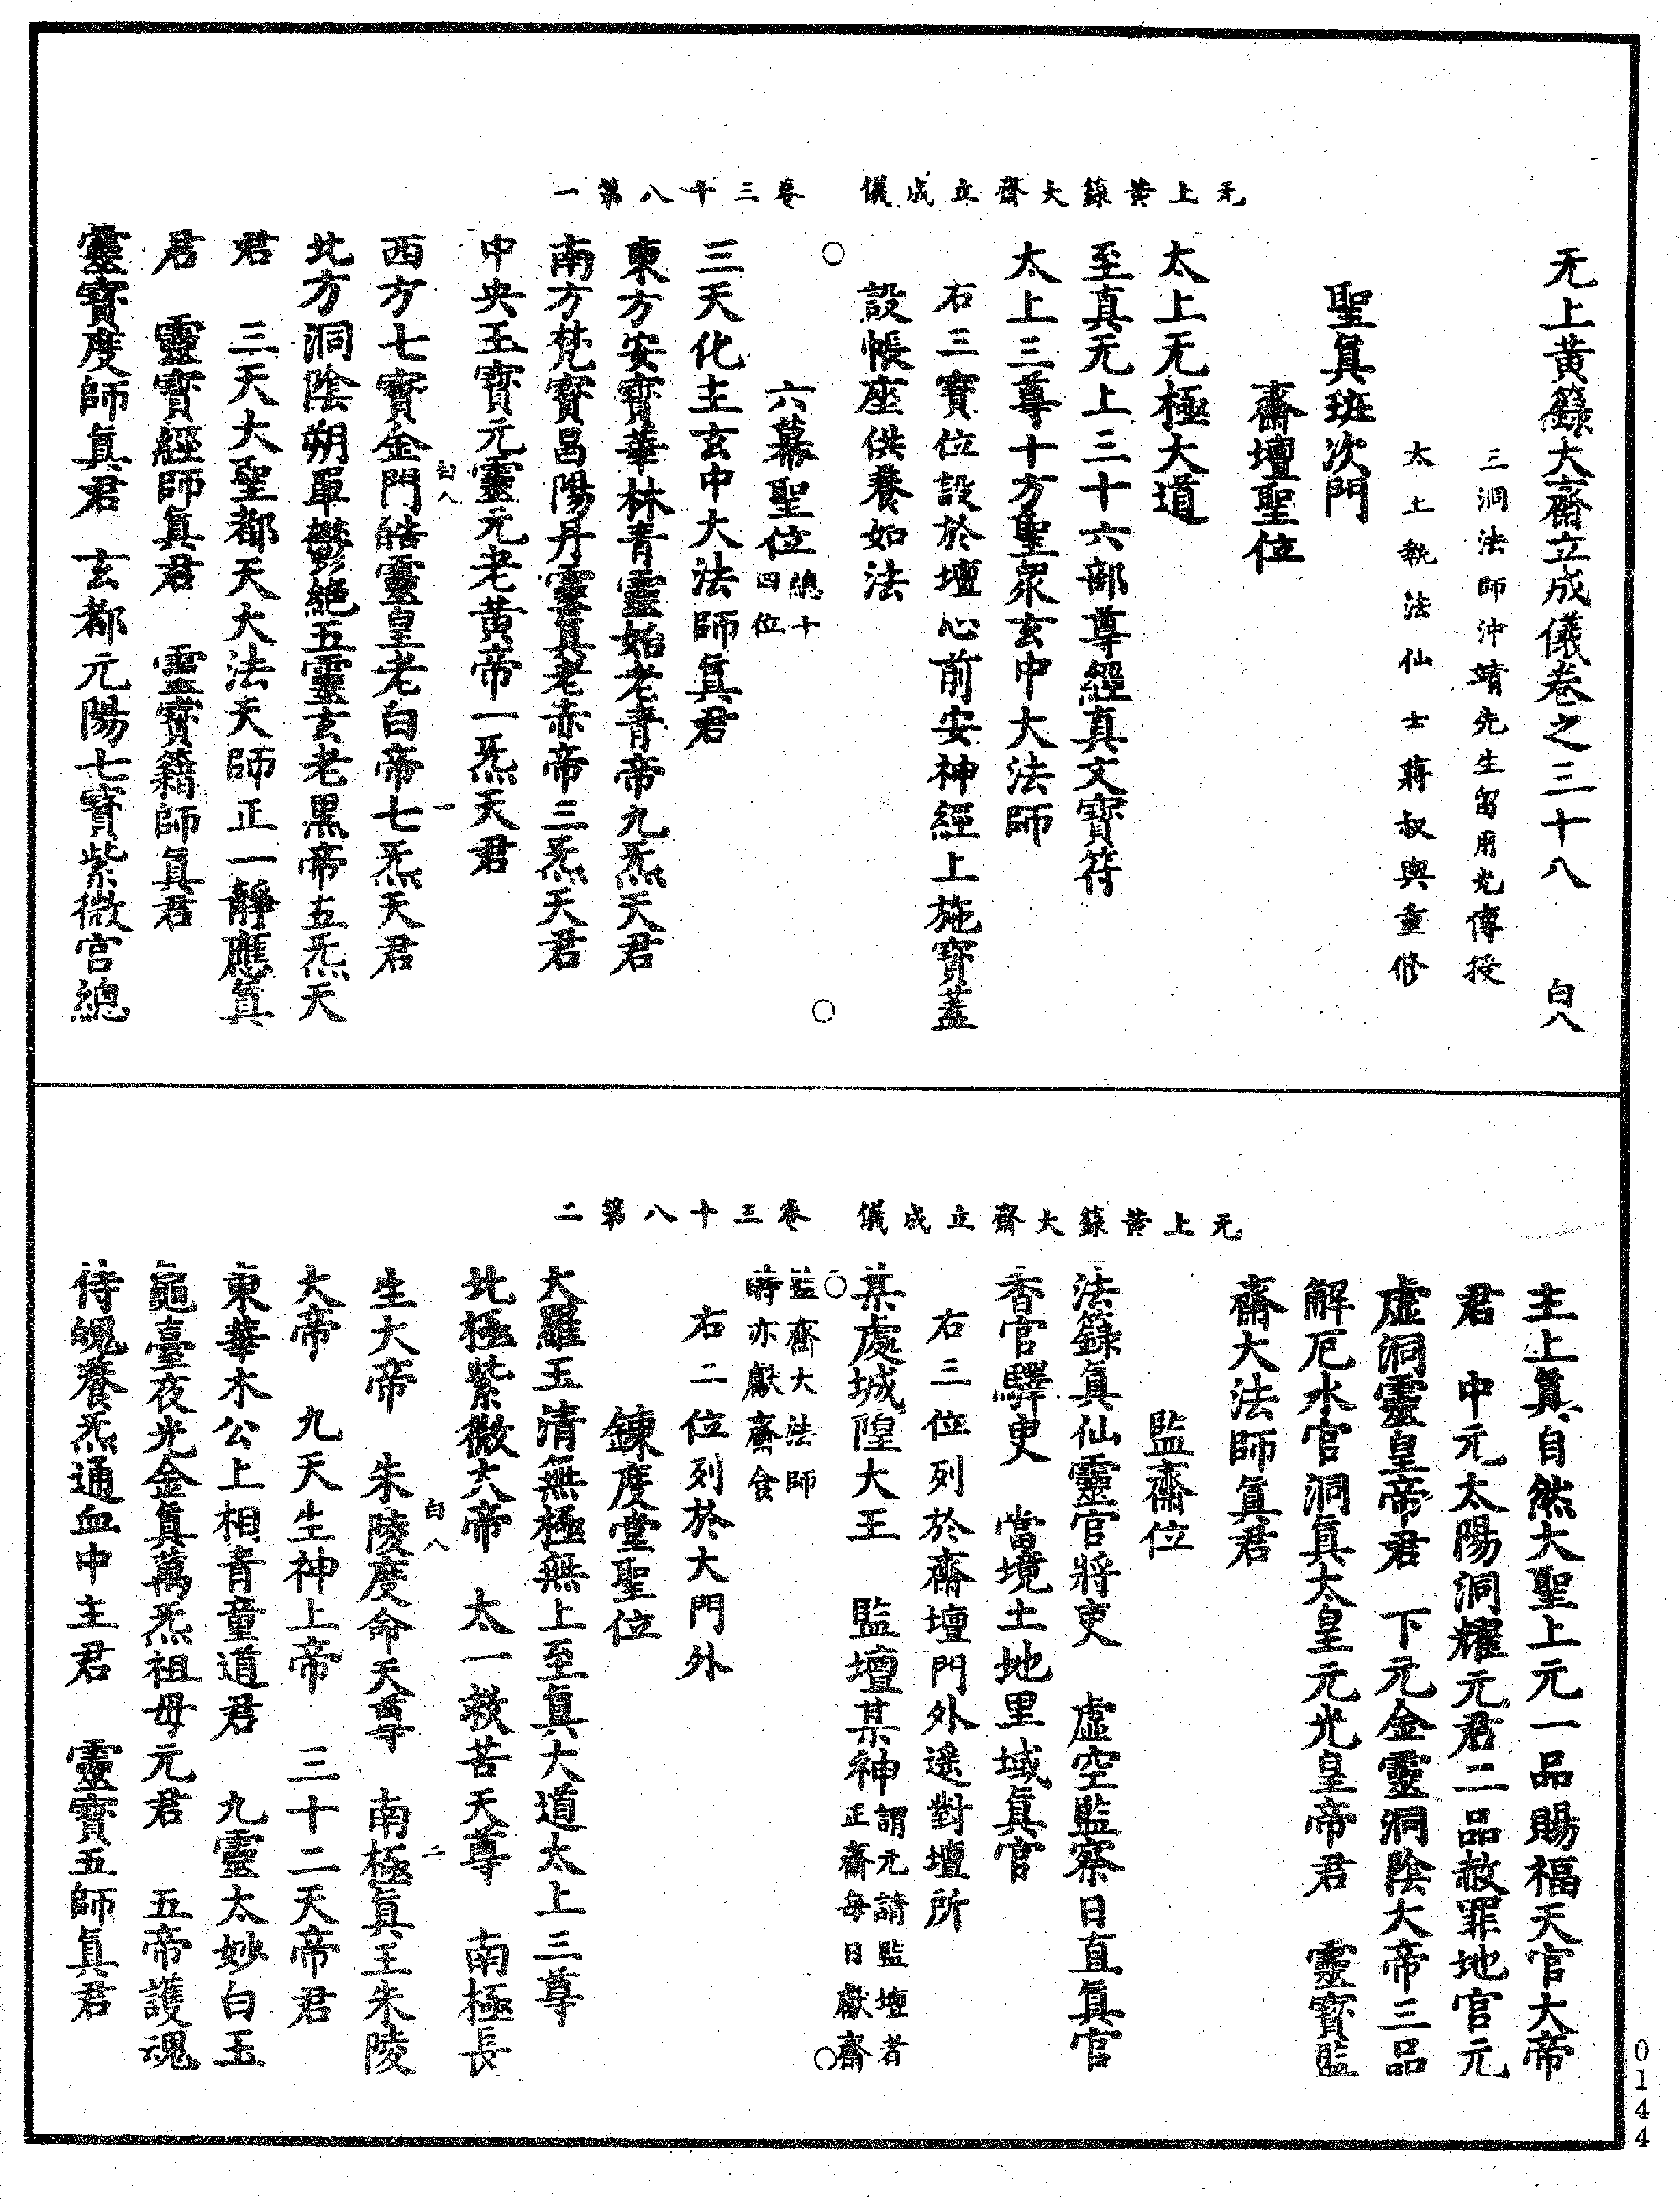 无上黃籙大齋立成儀　卷三十八第一
无上黃籙大齋立成儀卷之三十八　白八
三洞法師沖靖先生留用光傳授
太上執法仙士蔣叔輿重修
聖真班次門
齋壇聖位
太上无極大道
至真无上三十六部尊經真文寶符
太上三尊十方聖眾玄中大法師
右三寶位設於壇心前安神經上施寶蓋
設帳座供養如法
六幕聖位總十四位
三天化主玄中大法師真君
東方安寶華林青靈始老青帝九炁天君
南方梵寶昌陽丹靈真老赤帝三炁天君
中央玉寶元靈元老黃帝一炁天君
白八　一
西方七寶金門皓靈皇老白帝七炁天君
北方洞陰朔單鬱絕五靈玄老黑帝五炁天
君　三天大聖都天大法天師正一靜應真
君　靈寶經師真君　靈寶籍師真君
靈寶度師真君　玄都元陽七寶紫微宮總
无上黃籙大齋立成儀　卷三十八第二
主上真自然大聖上元一品賜福天官大帝
君　中元太陽洞耀元君二品赦罪地官元
虛洞靈皇帝君　下元金靈洞陰大帝三品
解厄水官洞真太皇元光皇帝君　靈寶監
齋大法師真君
監齋位
法籙真仙靈官將吏　虛空監察日直真官
香官驛吏　當境土地里域真官
右三位列於齋壇門外遙對壇所
某處城隍大王　監壇某神謂元請監壇者正齋每日獻齋
監齋大法師時亦獻齋食
右二位列於大門外
鍊度堂聖位
大羅玉清無極無上至真大道太上三尊
北極紫微大帝　太一救苦天尊　南極長
白八　二
生大帝　朱陵度命天尊　南極真王朱陵
大帝　九天生神上帝　三十二天帝君
東華木公上相青童道君　九靈太妙白玉
龜臺夜光金真萬炁祖母元君　五帝護魂
侍魄養炁通血中主君　靈寶五師真君
0144